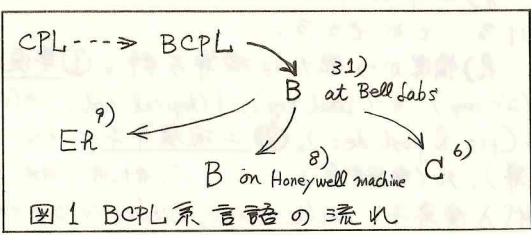 CPL ----> BCPL
B 31) at Bell Labs
Eh 9)
B on Honeywell machine 8)
C 6)
図1 BCPL系言語の流れ